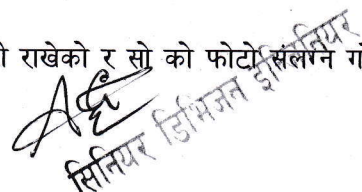 राखेको र सो को फोटो संलग्न
सिनियर डिभिजन इन्जिनियर